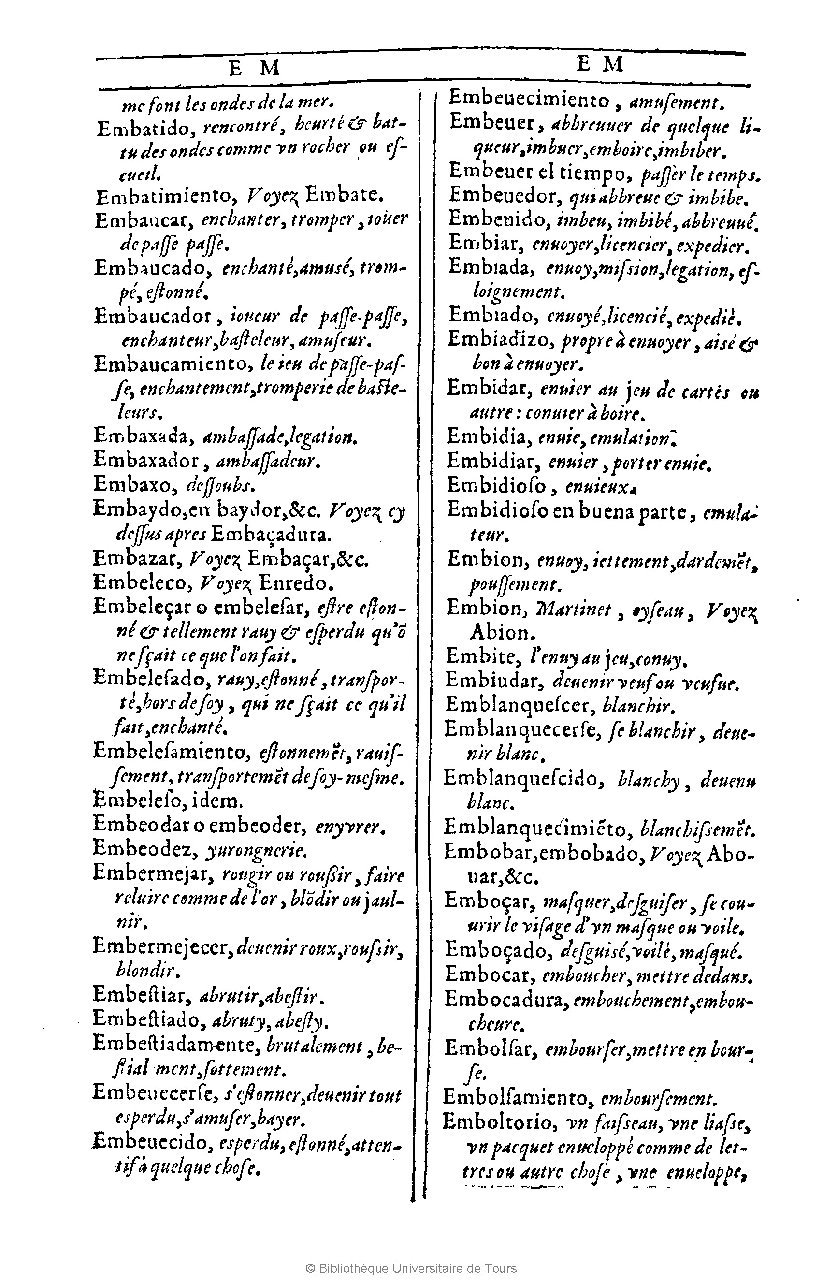 E M
me font les ondes de la mer.
Embatido, rencontré, heurté & bat-
tu des ondes comme vn rocher ou eſ-
cueil.
Embatimiento, Voyez Embate.
Embaucar, enchanter, tromper, iouër
de paſſe paſſe.
Embaucado, enchanté, amusé, trom-
pé, eſtonné.
Embaucador, ioueur de paſſe-paſſe,
enchanteur, baſteleur, amuſeur.
Embaucamiento, le ieu de paſſe-paſ-
ſe, enchantement, tromperie de baſte-
leurs.
Embaxada, ambaſſade, legation.
Embaxador, ambaſſadeur.
Embaxo, deſſoubs.
Embaydo, en baydor, &c. Voyez cy
deſſus apres Embaçadura.
Embazar, Voyez Embaçar, &c.
Embeleco, Voyez Enredo.
Embeleçar o embeleſar, eſtre eſton-
né & tellement rauy & eſperdu qu'õ
ne ſçait ce que l'on fait.
Embeleſado, rauy, eſtonné, tranſpor-
té, hors de ſoy, qui ne ſçait ce qu'il
fait, enchanté.
Embeleſamiento, eſtonnemẽt, rauiſ-
ſement, tranſportemẽt de ſoy-meſme.
Embeleſo, idem.
Embeodar o embeoder, enyvrer.
Embeodez, yurongnerie.
Embermejar, rougir ou rouſſir, faire
reluire comme de l'or, blõdir ou jaul-
nir.
Embermejecer, deuenir roux, rouſſir,
blondir.
Embeſtiar, abrutir, abeſtir.
Embeſtiado, abruty, abeſty.
Embeſtiadamente, brutalement, be-
ſtial ment, ſottement.
Embeuecerſe, s'eſtonner, deuenir tout
esperdu, s'amuſer, bayer.
Embeuecido, esperdu, eſtonné, atten-
tif à quelque choſe.
E M
Embeuecimiento, amuſement.
Embeuer, abbreuuer de quelque li-
queur, imbuer, emboire, imbiber.
Embeuer el tiempo, paſſer le temps.
Embeuedor, qui abbreue & imbibe.
Embeuido, imbeu, imbibé, abbreuué.
Embiar, enuoyer, licencier, expedier.
Embiada, enuoy, miſſion, legation, eſ-
loignement.
Embiado, enuoyé, licencié, expedié.
Embiadizo, propre à enuoyer, aisé &
bon à enuoyer.
Embidar, enuier au jeu de cartes ou
autre : conuier à boire.
Embidia, enuie, emulation.
Embidiar, enuier, porter enuie.
Embidioſo, enuieux.
Embidioſo en buena parte, emula-
teur.
Embion, enuoy, iettement, dardemẽt,
pouſſement.
Embion, Martinet, oyſeau, Voyez
Abion.
Embite, l'enuy au jeu, conuy.
Embiudar, deuenir veuf ou veufue.
Emblanqueſcer, blanchir.
Emblanquecerſe, ſe blanchir, deue-
nir blanc.
Emblanqueſcido, blanchy, deuenu
blanc.
Emblanquecimiẽto, blanchiſsemẽt.
Embobar, embobado, Voyez Abo-
uar, &c.
Emboçar, maſquer, deſguiſer, ſe cou-
urir le viſage d'vn maſque ou voile.
Emboçado, deſguisé, voilé, maſqué.
Embocar, emboucher, mettre dedans.
Embocadura, embouchement, embou-
cheure.
Embolſar, embourſer, mettre en bour-
ſe.
Embolſamiento, embourſement.
Emboltorio, vn faiſseau, vne liaſse,
vn pacquet enueloppé comme de let-
tres ou autre choſe, vne enueloppe,
© Bibliothèque Universitaire de Tours